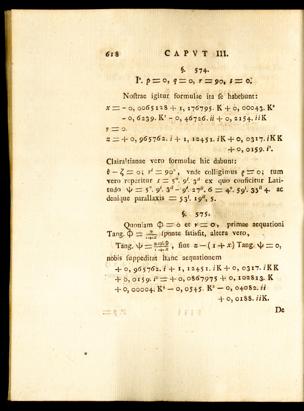 618 CAPVT III.
§. 574.
I°. p = 0, q = 0, r = 90, s = 0.
Nostrae igitur formulae ita se habebunt:
x = - 0, 0065128 + 1, 176795. K + 0, 00043. K²
- 0, 6239. K² - 0, 46726. ii + 0, 2154. iiK
y = 0.
z = + 0, 965762. i + 1, 12451. iK + 0, 0317. iKK
+ 0, 0159. i³.
Clairaltianae vero formulae hic dabunt:
= 0; = 90°, vnde colligimus = 0; tum
vero reperitur = 5°. 9'. 3" ex quo conficitur Lati-
tudo ψ = 5°. 9'. 3" - 9'. 27". 6 = 4°. 59'. 33" + ac
denique parallaxis = 53'. 19", 5.
§. 575.
Quoniam Φ = 0 et = 0, primae aequationi
Tang. Φ = sponte satisfit, altera vero,
Tang. ψ = , siue z - (1 + x) Tang. ψ = 0,
nobis suppeditat hanc aequationem
+ 0, 965762. i + 1, 12451. iK + 0, 0317. iKK
+ 0, 0159. i³ = + 0, 0867975 + 0, 102813. K
+ 0, 00004. K² - 0, 0545. K² - 0, 04082. ii
+ 0, 0188. iiK.
De